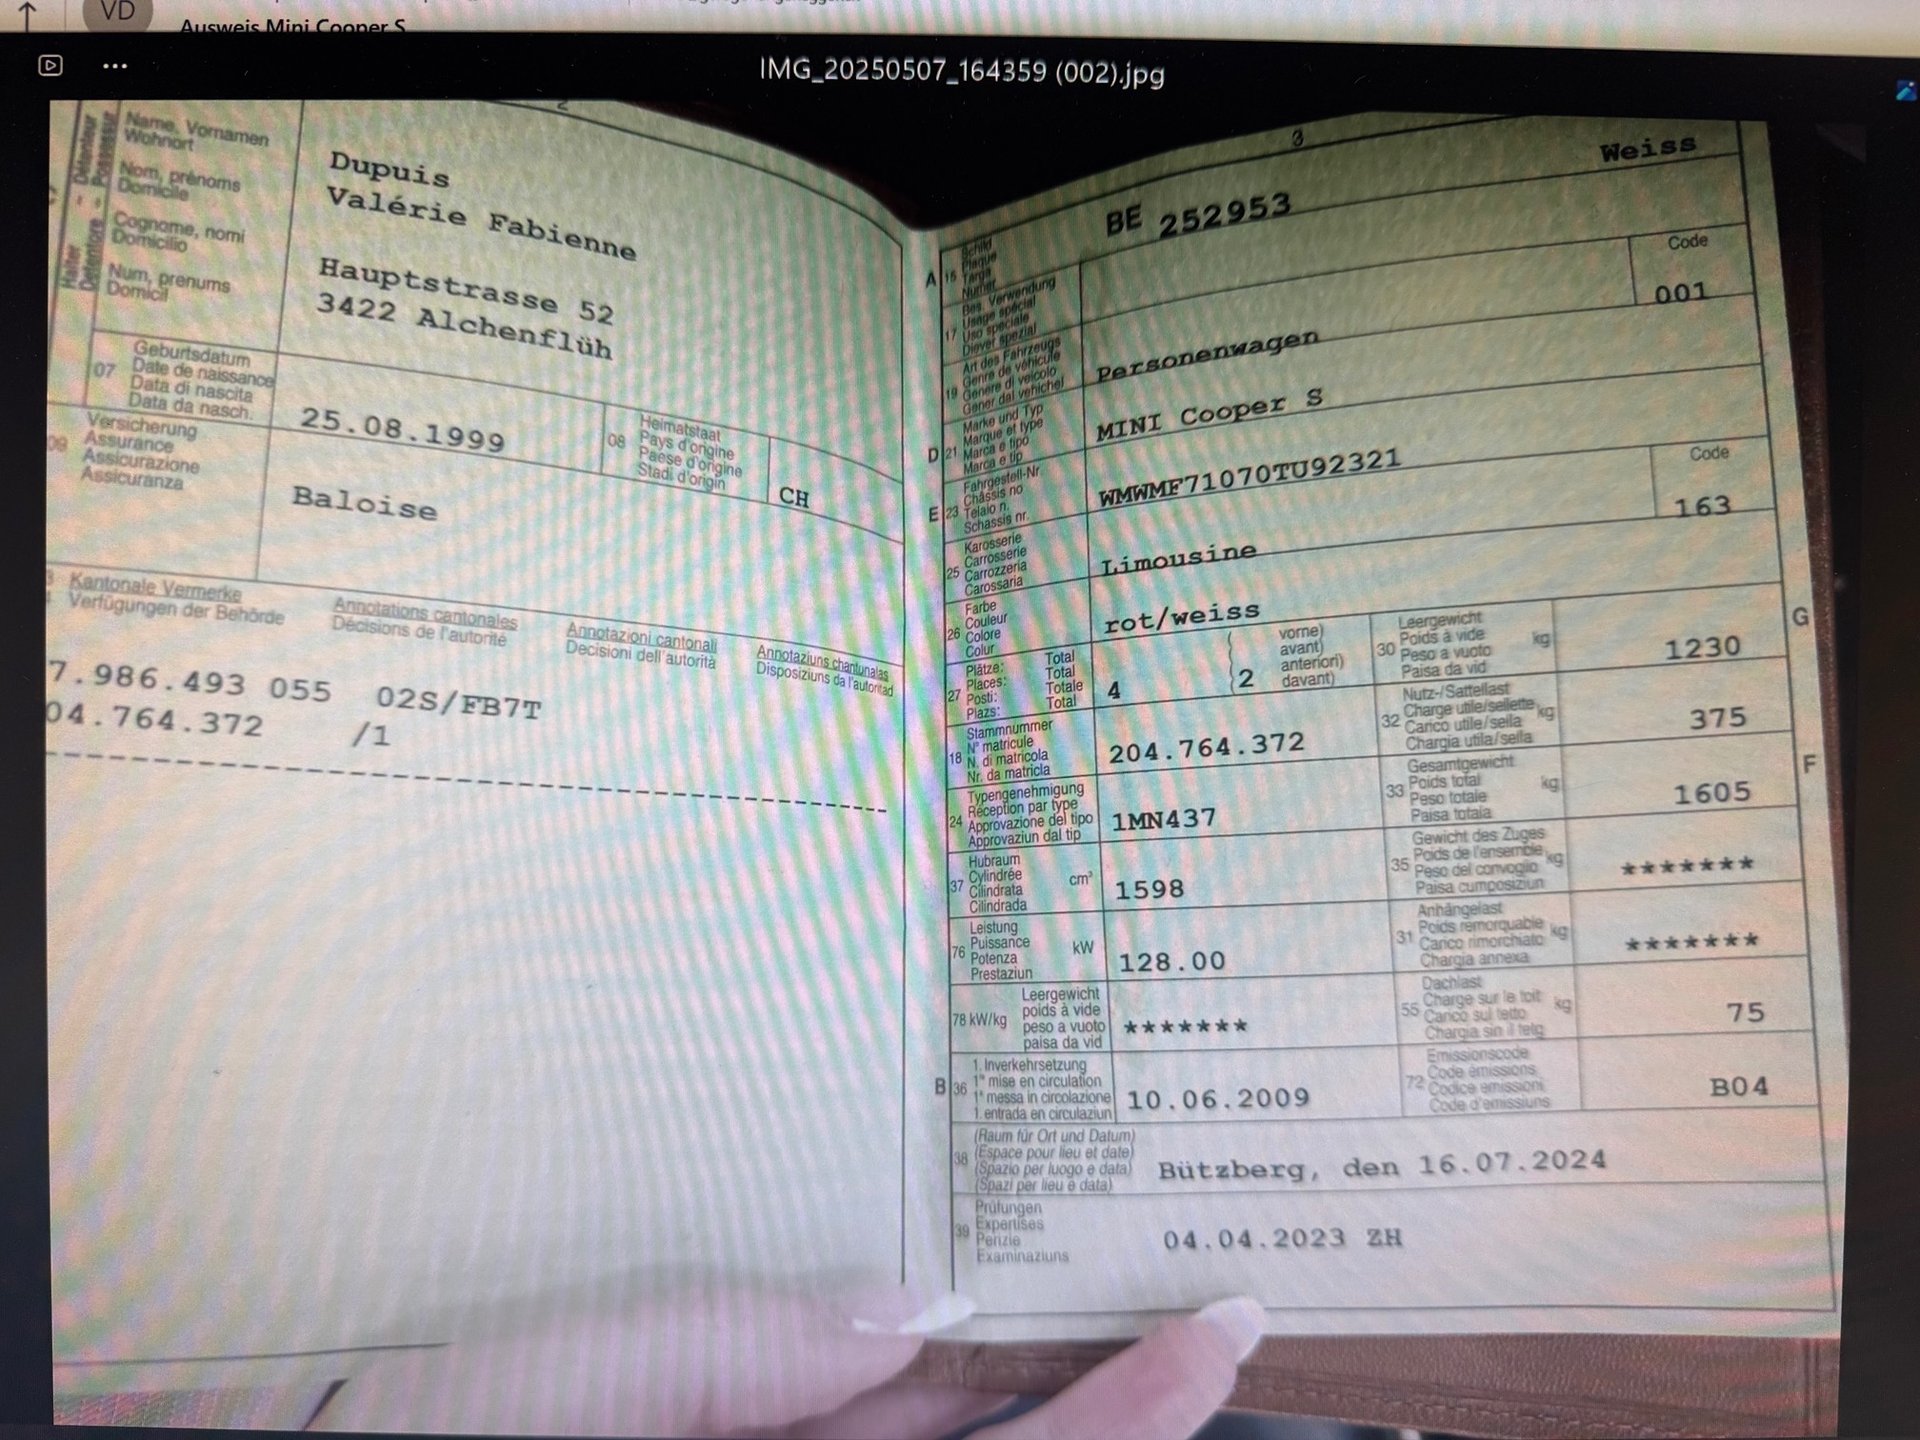 VD
Ausweis Mini Cooper S
IMG_20250507_164359 (002).jpg
2
Halter
Détenteur
Detentore
Possessur
Name, Vornamen
Wohnort
Nom, prénoms
Domicile
Cognome, nomi
Domicilio
Num, prenums
Domicil
Dupuis
Valérie Fabienne
Hauptstrasse 52
3422 Alchenflüh
07
Geburtsdatum
Date de naissance
Data di nascita
Data da nasch.
25.08.1999
08
Heimatstaat
Pays d'origine
Paese d'origine
Stadi d'origin
CH
09
Versicherung
Assurance
Assicurazione
Assicuranza
Baloise
Kantonale Vermerke
Verfügungen der Behörde
Annotations cantonales
Décisions de l'autorité
Annotazioni cantonali
Decisioni dell'autorità
Annotaziuns chantunalas
Disposiziuns da l'autoritad
7.986.493 055 02S/FB7T
04.764.372 /1
3
Weiss
A 15
Schild
Plaque
Targa
Numer
BE 252953
17
Bes. Verwendung
Usage spécial
Uso speciale
Diever spezial
Code
001
19
Art des Fahrzeugs
Genre de véhicule
Genere di veicolo
Gener dal vehichel
Personenwagen
D 21
Marke und Typ
Marque et type
Marca e tipo
Marca e tip
MINI Cooper S
E 23
Fahrgestell-Nr.
Châssis no
Telaio n.
Schassis nr.
WMWMF71070TU92321
Code
163
25
Karosserie
Carrosserie
Carrozzeria
Carossaria
Limousine
26
Farbe
Couleur
Colore
Colur
rot/weiss
27
Plätze: Total
Places: Total
Posti: Totale
Plazs: Total
4
( 2
vorne)
avant)
anteriori)
davant)
30
Leergewicht
Poids à vide
Peso a vuoto
Paisa da vid
kg
1230
G
18
Stammnummer
N° matricule
N. di matricola
Nr. da matricla
204.764.372
32
Nutz-/Sattellast
Charge utile/sellette
Carico utile/sella
Chargia utila/sella
kg
375
24
Typengenehmigung
Réception par type
Approvazione del tipo
Approvaziun dal tip
1MN437
33
Gesamtgewicht
Poids total
Peso totale
Paisa totala
kg
1605
F
37
Hubraum
Cylindrée
Cilindrata
Cilindrada
cm³
1598
35
Gewicht des Zuges
Poids de l'ensemble
Peso del convoglio
Paisa cumposiziun
kg
*******
76
Leistung
Puissance
Potenza
Prestaziun
kW
128.00
31
Anhängelast
Poids remorquable
Carico rimorchiato
Chargia annexa
kg
*******
78 kW/kg
Leergewicht
poids à vide
peso a vuoto
paisa da vid
*******
55
Dachlast
Charge sur le toit
Carico sul tetto
Chargia sin il tetg
kg
75
B 36
1. Inverkehrsetzung
1re mise en circulation
1a messa in circolazione
1. entrada en circulaziun
10.06.2009
72
Emissionscode
Code émissions
Codice emissioni
Code d'emissiuns
B04
38
(Raum für Ort und Datum)
(Espace pour lieu et date)
(Spazio per luogo e data)
(Spazi per lieu e data)
Bützberg, den 16.07.2024
39
Prüfungen
Expertises
Perizie
Examinaziuns
04.04.2023 ZH